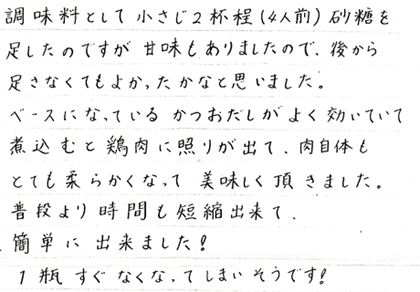 調味料として小さじ2杯程(4人前)砂糖を
足したのですが甘味もありましたので、後から
足さなくてもよかったかなと思いました。
ベースになっているかつおだしがよく効いていて
煮込むと鶏肉に照りが出て、肉自体も
とても柔らかくなって美味しく頂きました。
普段より時間も短縮出来て、
簡単に出来ました!
1瓶すぐなくなってしまいそうです!